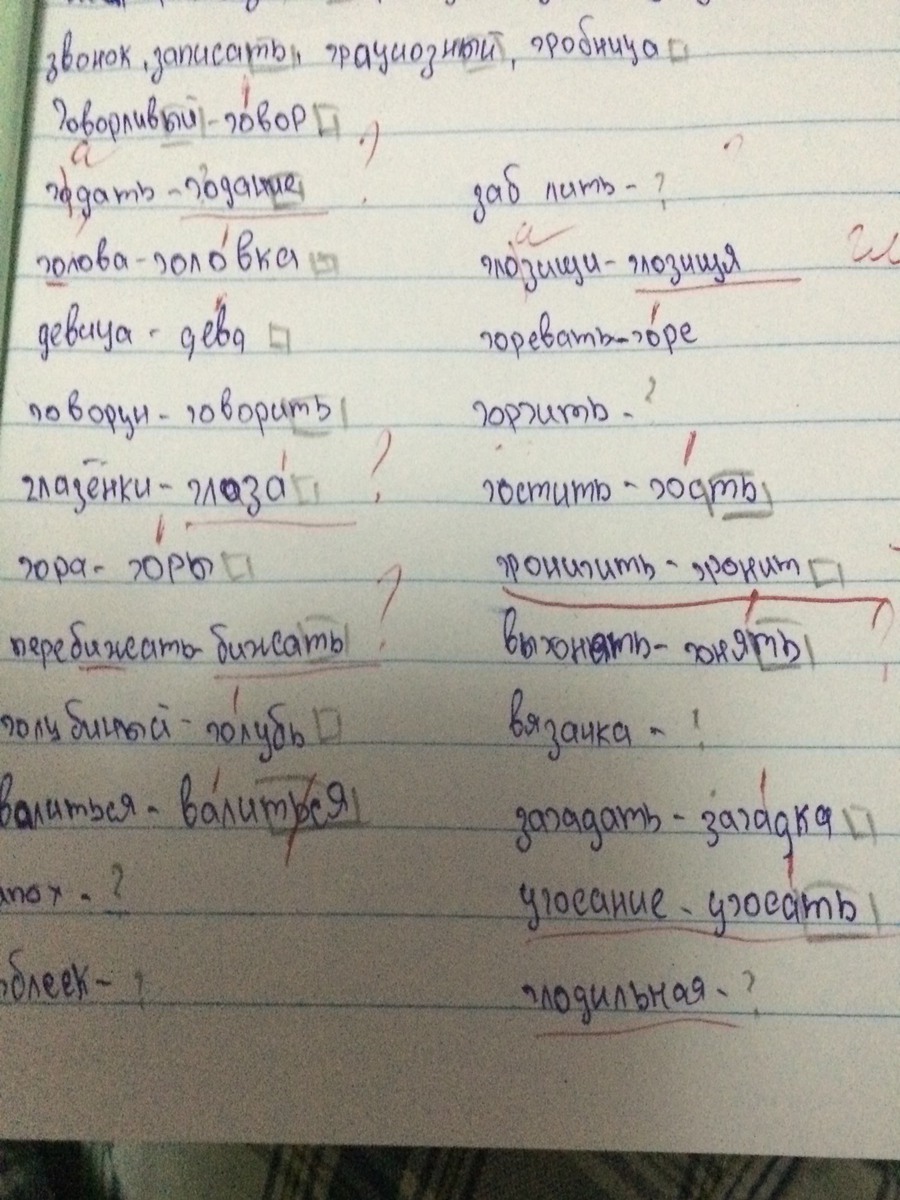 звонок, записать, грациозный, гробница
говорливый - говор
годать - годание
голова - головка
девица - дева
говорун - говорить
глазёнки - глоза
гора - горы
перебижсать - бижсать
голубиный - голубь
валиться - валиться
?
облеек - ?
?
заб лить - ?
глозищи - глозищя
горевать - горе
горзить - ?
гостить - гость
гронизить - гронит
выхонять - гонять
вязанка - ?
загадать - загадка
угосание - угосать
глодильная - ?